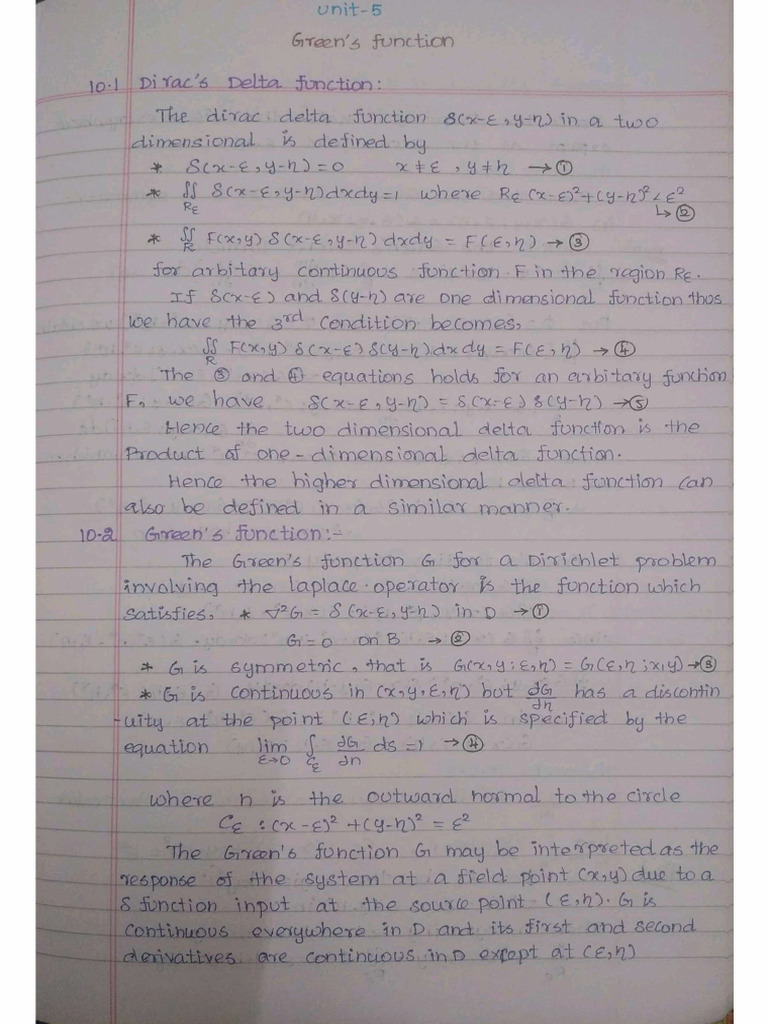 Unit-5
Green's function
10.1 Dirac's Delta function:
The dirac delta function δ(x-ε, y-η) in a two
dimensional is defined by
* δ(x-ε, y-η) = 0 x ≠ ε, y ≠ η → ①
* ∬_Rε δ(x-ε, y-η) dxdy = 1 where Rε (x-ε)² + (y-η)² < ε²
↳ ②
* ∬_R F(x,y) δ(x-ε, y-η) dxdy = F(ε,η) → ③
for arbitary continuous function F in the region Rε.
If δ(x-ε) and δ(y-η) are one dimensional function thus
we have the 3rd condition becomes,
∬_R F(x,y) δ(x-ε) δ(y-η) dxdy = F(ε,η) → ④
The ③ and ④ equations holds for an arbitary function
F, we have δ(x-ε, y-η) = δ(x-ε) δ(y-η) → ⑤
Hence the two dimensional delta function is the
Product of one-dimensional delta function.
Hence the higher dimensional delta function can
also be defined in a similar manner.
10.2 Green's function:-
The Green's function G for a Dirichlet problem
involving the laplace operator is the function which
satisfies, * ∇²G = δ(x-ε, y-η) in D → ①
G = 0 on B → ②
* G is symmetric, that is G(x,y; ε,η) = G(ε,η; x,y) → ③
* G is continuous in (x,y,ε,η) but ∂G/∂n has a discontin
-uity at the point (ε,η) which is specified by the
equation lim ε→0 ∫_Cε ∂G/∂n ds = 1 → ④
where n is the outward normal to the circle
Cε : (x-ε)² + (y-η)² = ε²
The Green's function G may be interpreted as the
response of the system at a field point (x,y) due to a
δ function input at the source point (ε,η). G is
continuous everywhere in D and its first and second
derivatives are continuous in D except at (ε,η)